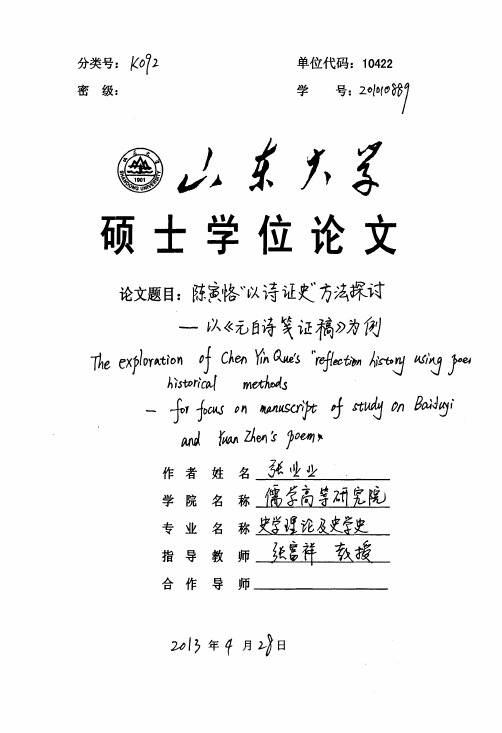 分类号：K092 单位代码：10422
密 级： 学 号：201010889
SHANDONG UNIVERSITY
1901
山东大学
硕士学位论文
论文题目：陈寅恪"以诗证史"方法探讨
— 以《元白诗笺证稿》为例
The exploration of Chen Yin Que's "reflection history using poem
historical methods
— for focus on manuscript of study on Baijuyi
and Yuan Zhen's poem"
作 者 姓 名 张业业
学 院 名 称 儒学高等研究院
专 业 名 称 史学理论及史学史
指 导 教 师 张富祥 教授
合 作 导 师
2013 年 4 月 28 日